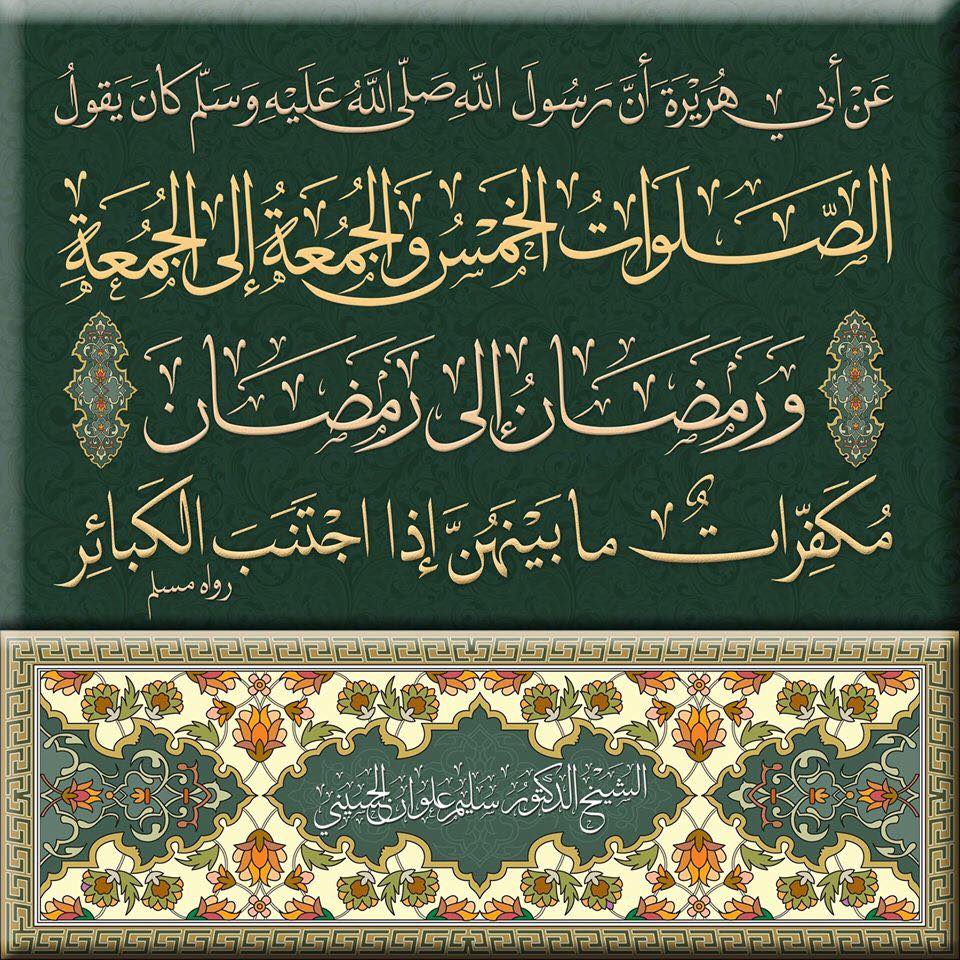 عَنْ أَبي هُرَيْرَةَ أَنَّ رَسُولَ اللَّهِ صَلَّى اللَّهُ عَلَيْهِ وَسَلَّم كانَ يَقولُ
الصَّلَوَاتُ الخَمْسُ وَالجُمُعَةُ إلى الجُمُعَةِ
وَرَمَضَانُ إِلى رَمَضَانَ
مُكَفِّرَاتٌ ما بَيْنَهُنَّ إذا اجْتَنَبَ الكَبائِر
رواه مسلم
الشيخ الدكتور سليم علوان الحسيني